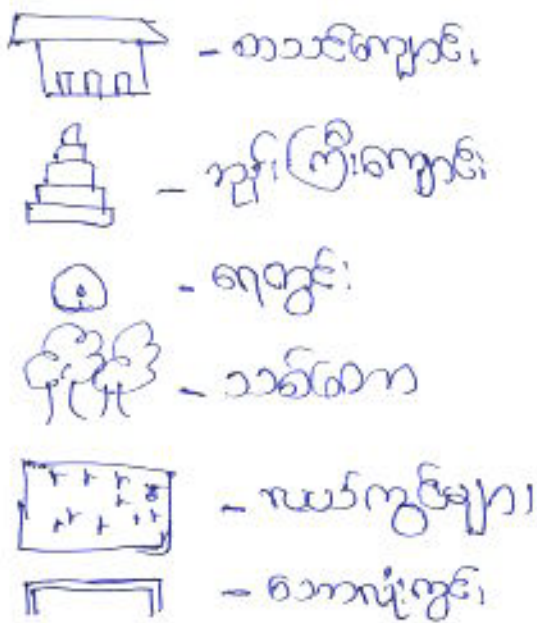 - စာသင်ကျောင်း
- ဘုန်းကြီးကျောင်း
- ရေတွင်း
- သစ်တော
- လယ်ကွင်းများ
- ဘောလုံးကွင်း